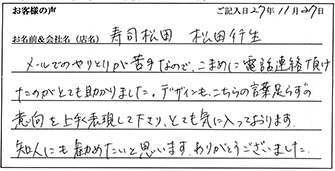 お客様の声
ご記入日27年11月27日
お名前&会社名(店名) 寿司松田 松田行生
メールでのやりとりが苦手なので、こまめに電話連絡頂け
たのがとても助かりました。デザインも、こちらの言葉足らずの
意向を上手く表現して下さり、とても気に入っております。
知人にも勧めたいと思います。ありがとうございました。